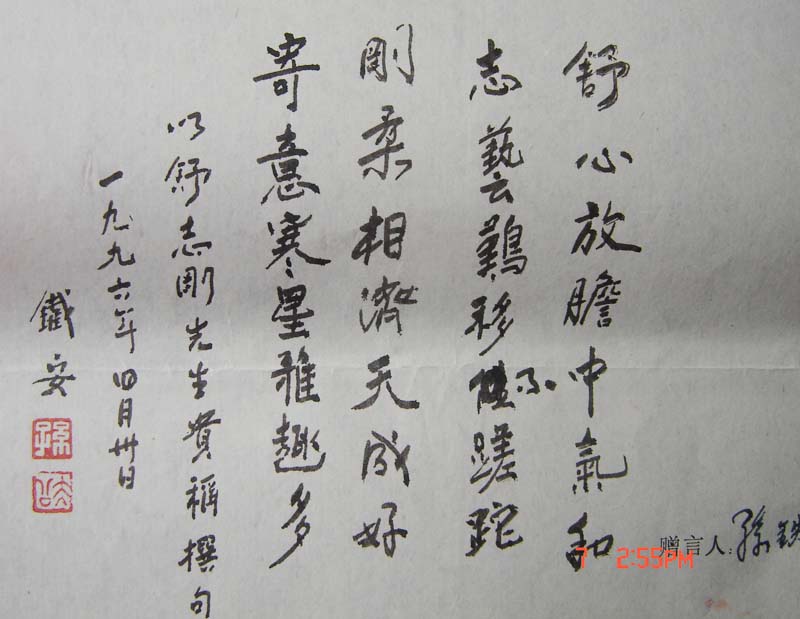 舒心放膽中氣和
志藝難移不蹉跎
剛柔相濟天成好
寄意寒星雅趣多
以舒志剛先生貴稱撰句
一九九六年四月卅日
鐵安
孫
赠言人:孫鉄
7 2:55PM